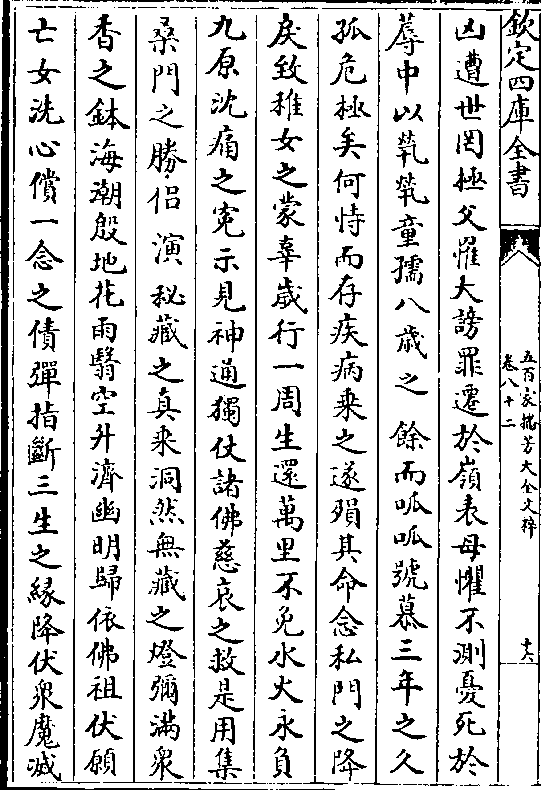 欽定四庫全書
五百家播芳大全文粹
卷八十二
凶遭世罔極父罹大謗罪遷於嶺表母懼不測憂死於
蓐中以煢煢童孺八歲之餘而呱呱號慕三年之久
孤危極矣何恃而存疾病乗之遂殞其命念私門之降
戾致稚女之蒙辜歲行一周生還萬里不免水火永負
九原沈痛之寃示見神通獨仗諸佛慈哀之救是用集
桑門之勝侣演秘藏之真乗洞然無藏之燈彌滿衆
香之鉢海潮殷地花雨翳空升濟幽明歸依佛祖伏願
亡女洗心償一念之債彈指斷三生之縁降伏衆魔滅